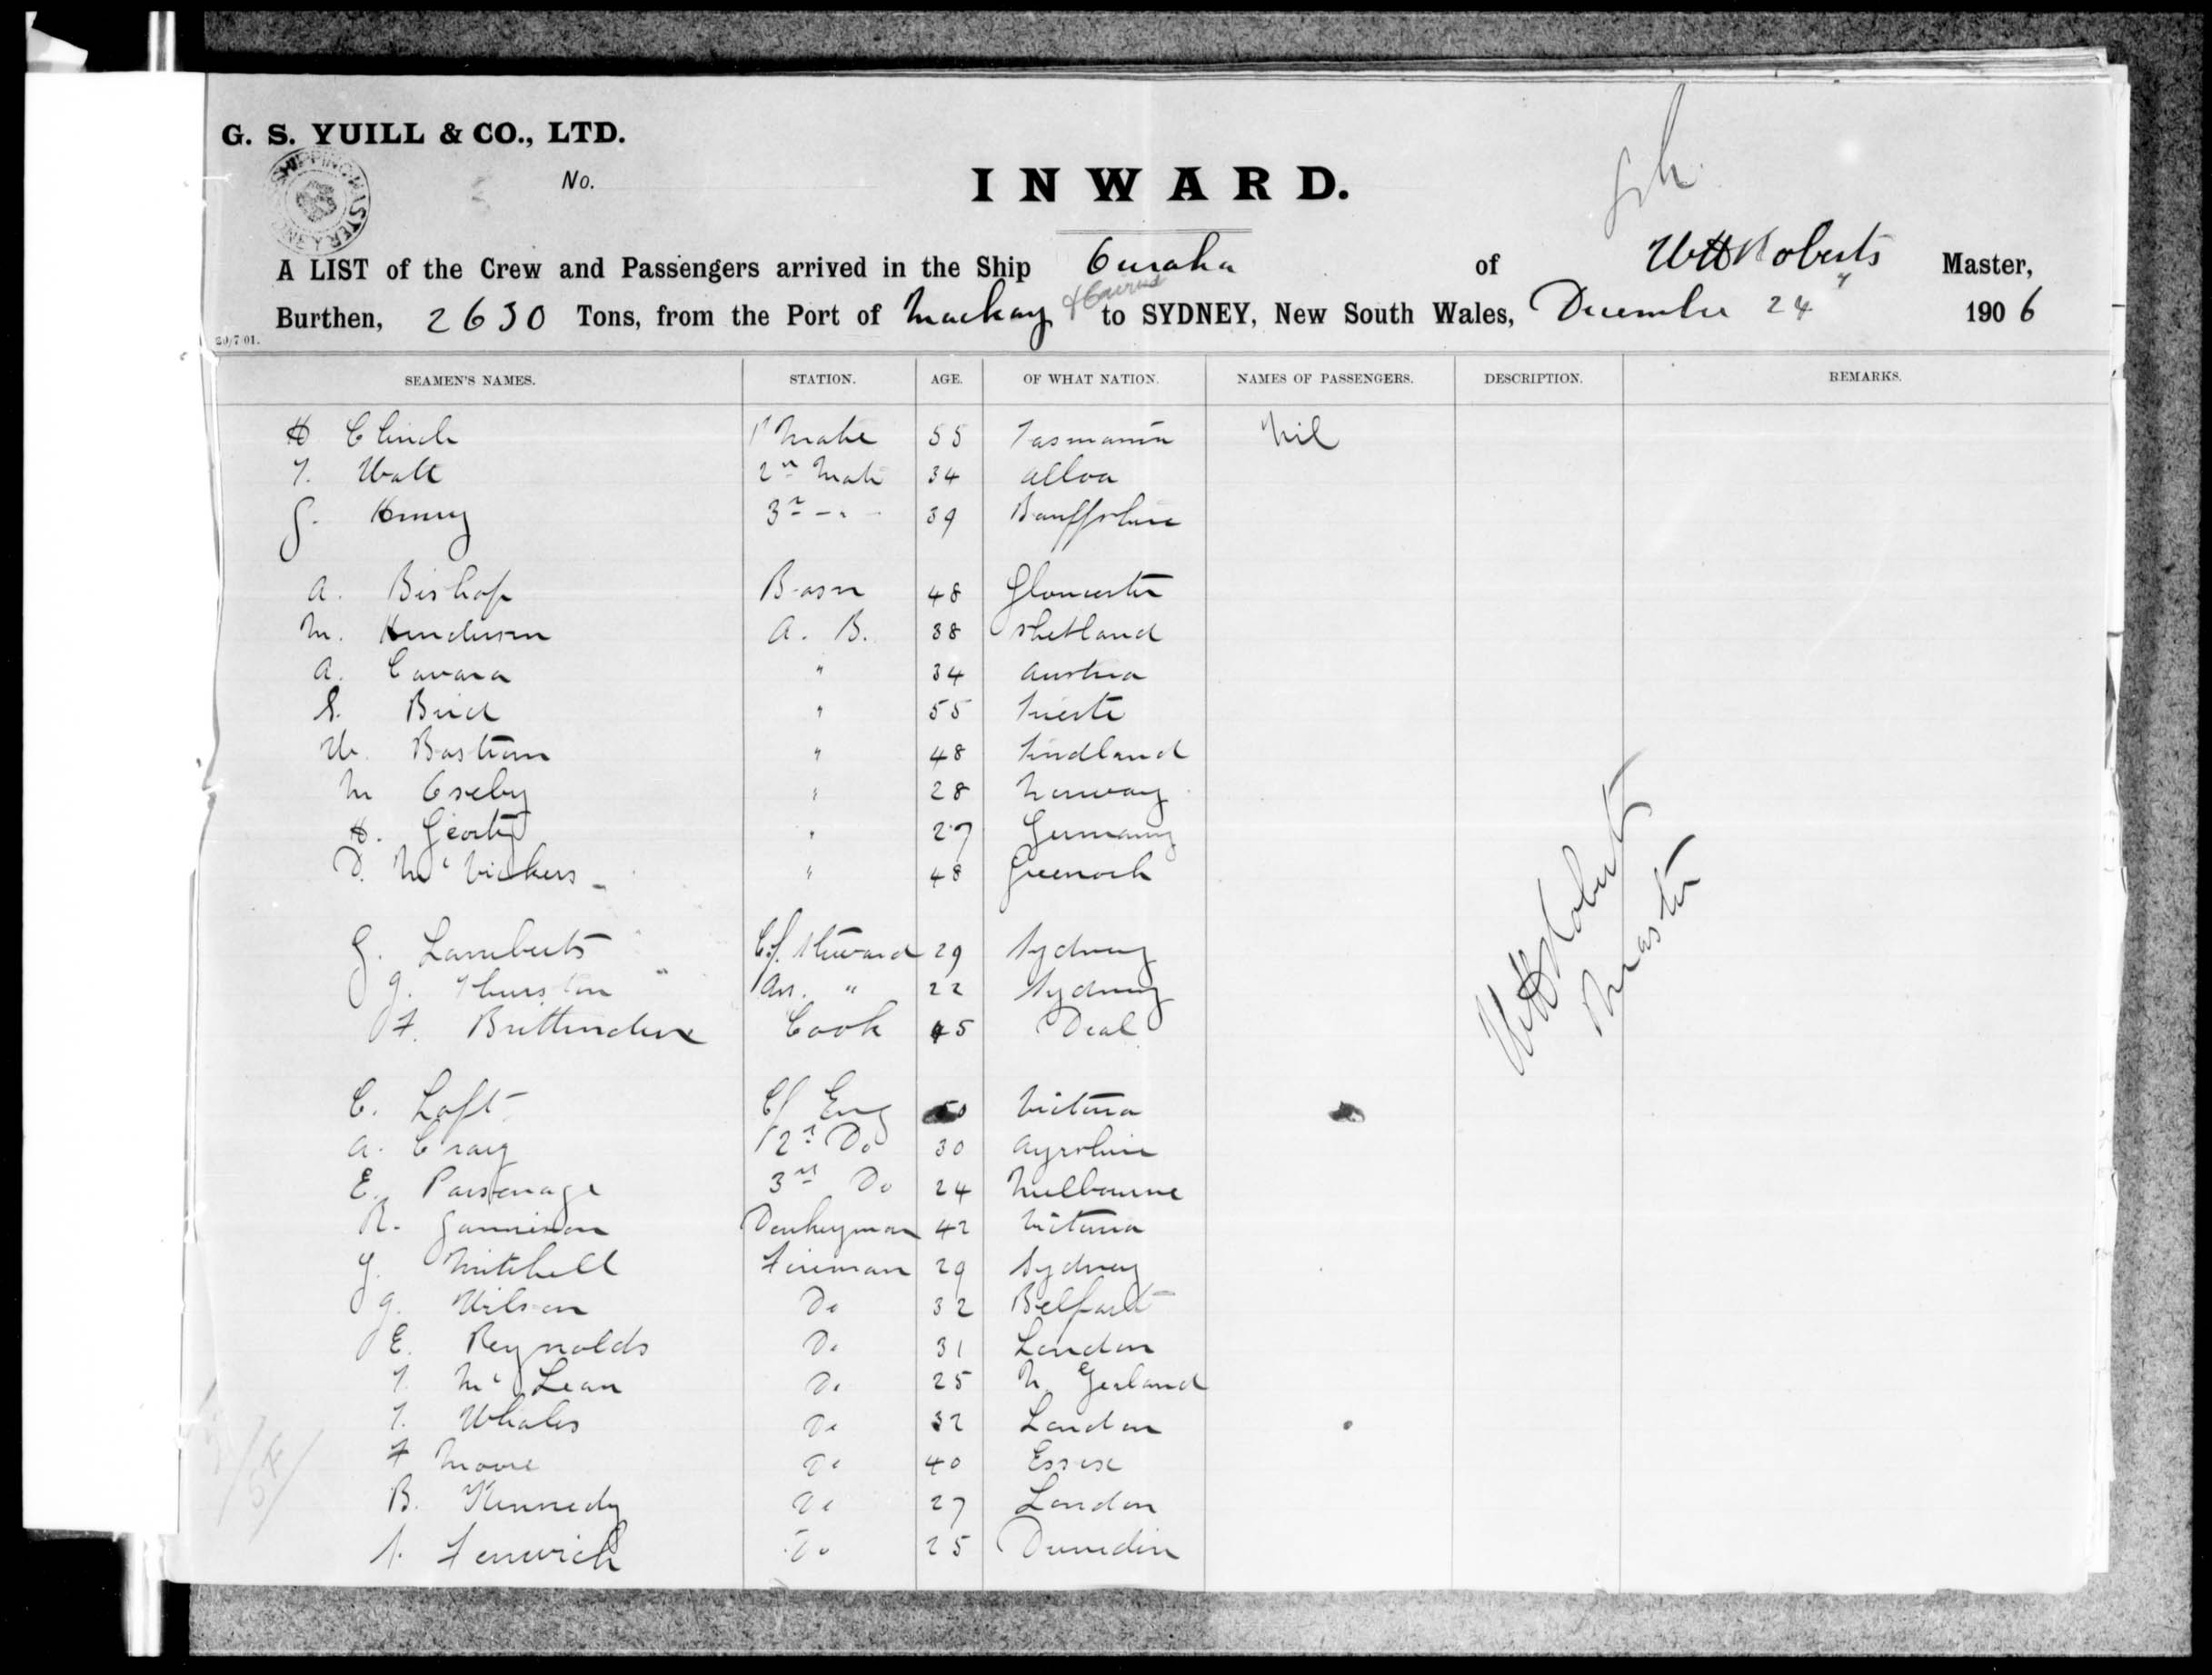 G. S. YUILL & CO., LTD.
No.
INWARD.
A LIST of the Crew and Passengers arrived in the Ship of WH Roberts Master,
Burthen, 2630 Tons, from the Port of Mackay & Cairns to SYDNEY, New South Wales, December 24 1906
20/7/01.
SEAMEN'S NAMES. STATION. AGE. OF WHAT NATION. NAMES OF PASSENGERS. DESCRIPTION. REMARKS.
H Clinch 1st Mate 55 Tasmania Nil
T. Watt 2nd Mate 34 Alloa
G. Henry 3rd - " - 39 Banffshire
A. Bishop Bosn 48 Gloucester
M. Henderson A. B. 38 Shetland
A. Cavara " 34 Austria
S. " 55 Trieste
W. Bastian " 48 Findland
M Oseby " 28 Norway
H. " 27 Germany
D. McVickers " 48 Greenock
G. Lamberts Cf. Steward 29 Sydney
J. Thurston Ass. " 22 Sydney
F. Cook 45 Deal
C. Loft Cf Eng 50 Victoria
A. Craig 2nd Do 30 Ayrshire
E. Parsonage 3rd Do 24 Melbourne
R. Jamieson Donkeyman 42 Victoria
J. Mitchell Fireman 29 Sydney
J. Wilson Do 32 Belfast
E. Reynolds Do 31 London
T. McLean Do 25 N. Zealand
T. Whales Do 32 London
F Moore Do 40 Essex
B. Kennedy Do 27 London
S. Fenwick Do 25 Dunedin
WH Roberts
Master